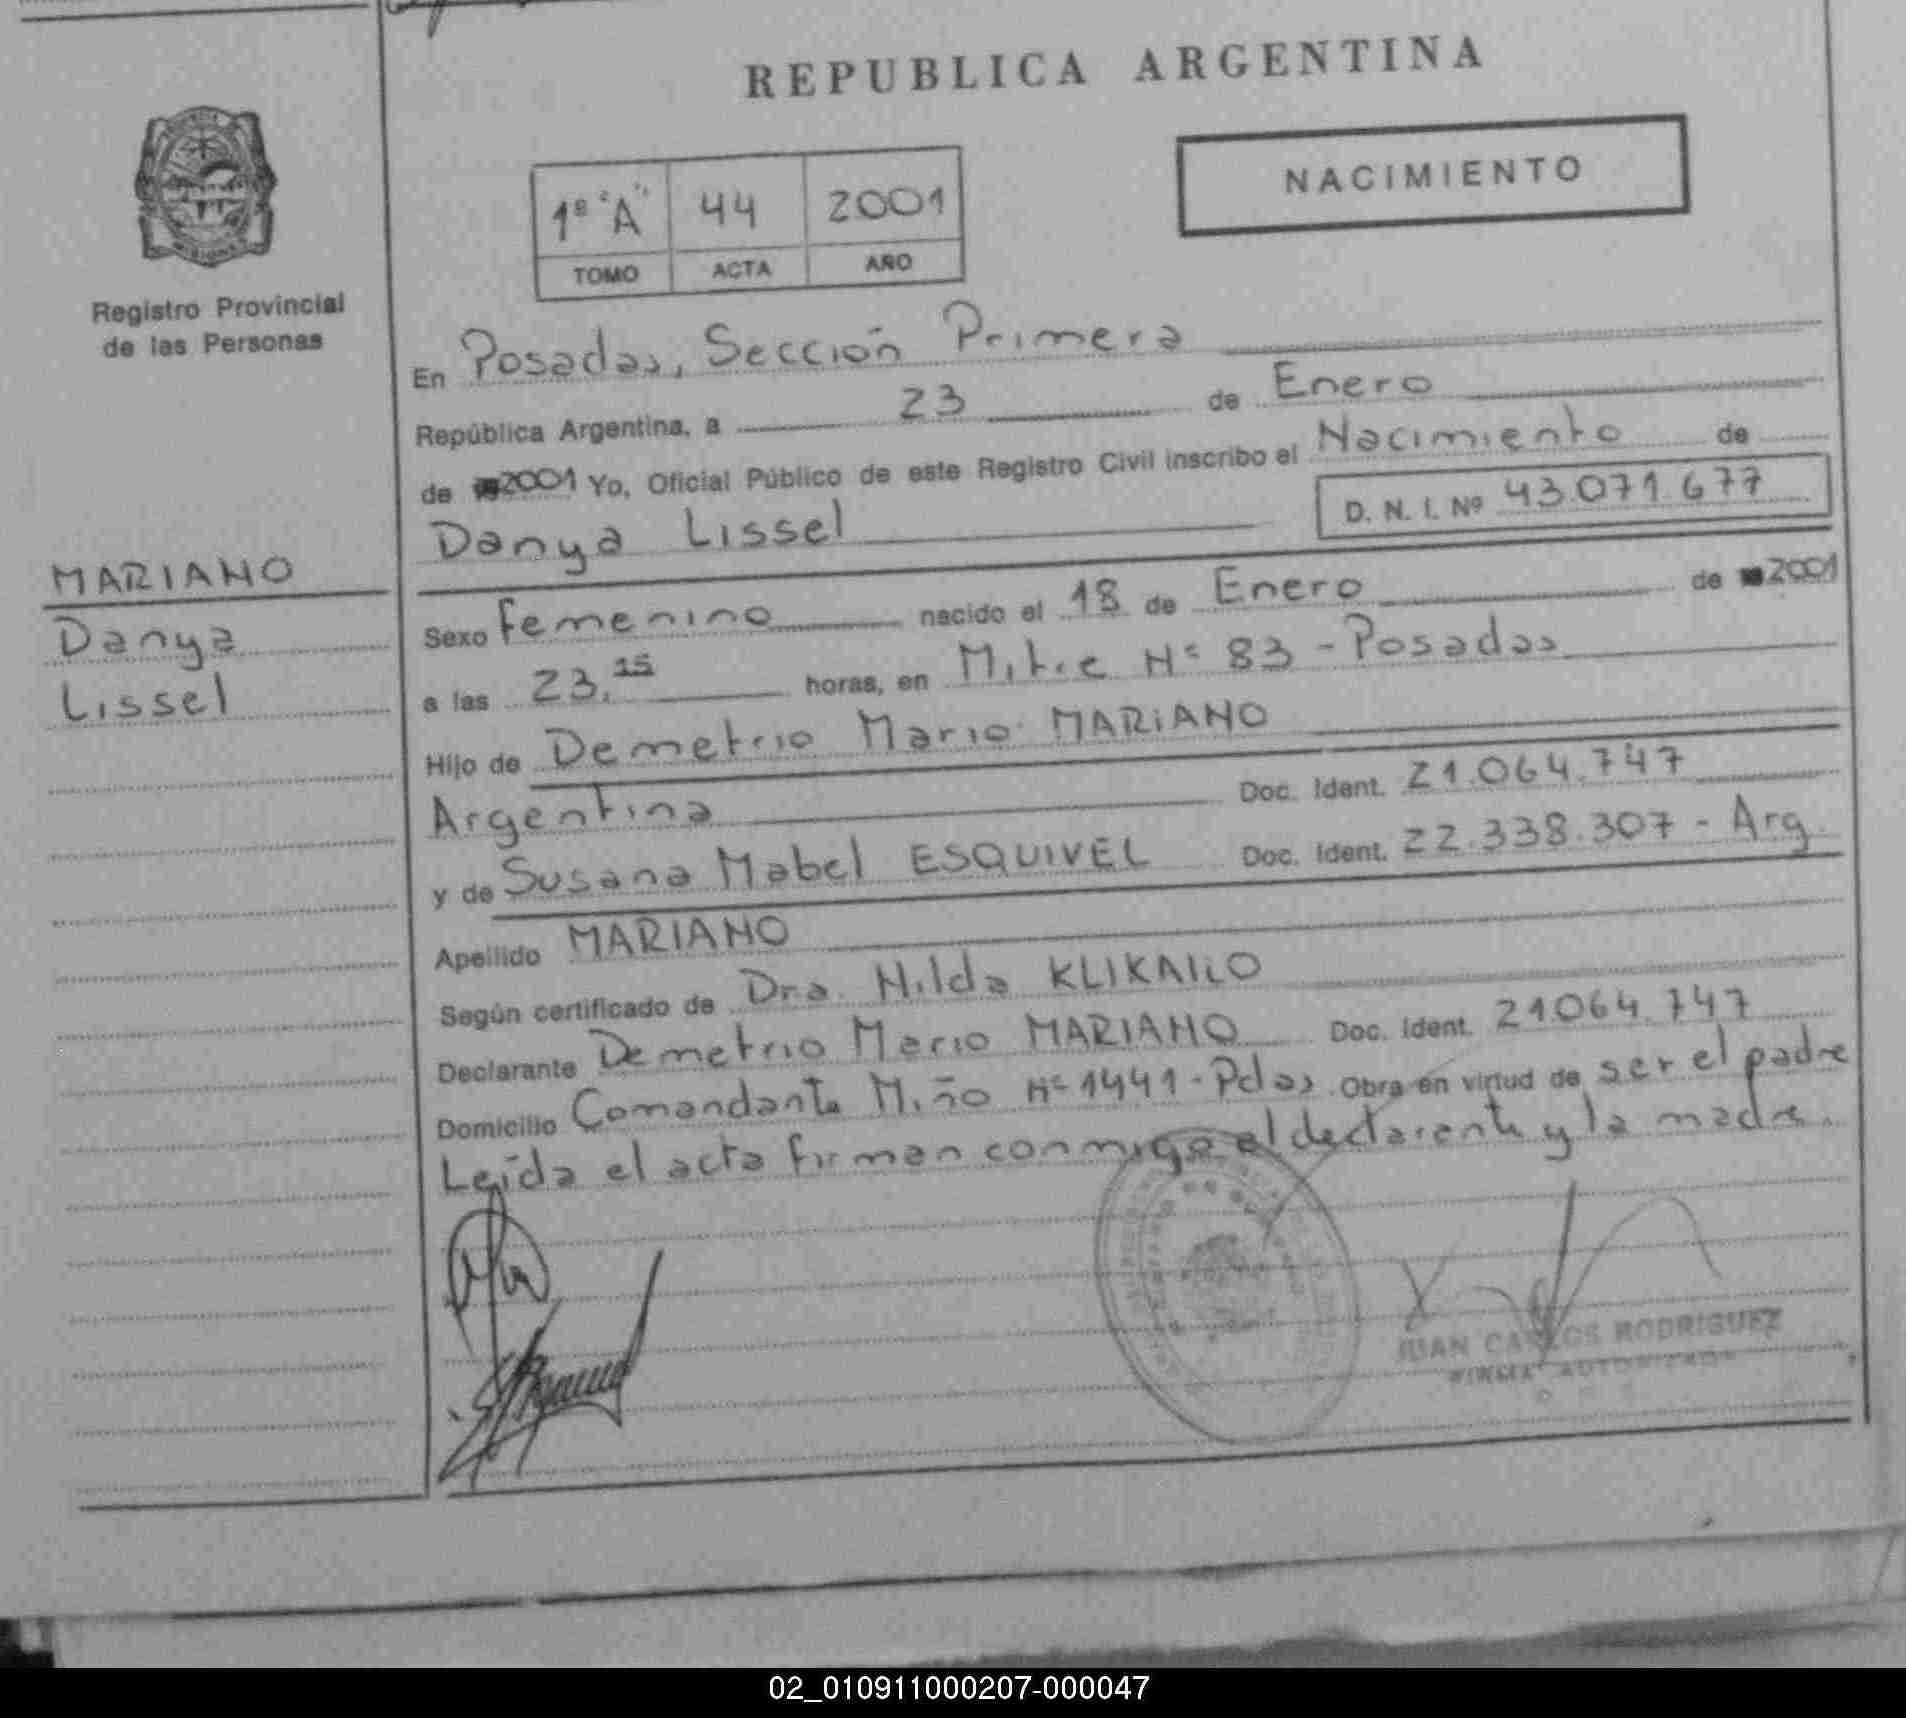 REPUBLICA ARGENTINA
NACIMIENTO
1º "A" 44 2001
TOMO ACTA AÑO
Registro Provincial
de las Personas
En Posadas, Sección Primera
República Argentina, a 23 de Enero
de 2001 Yo, Oficial Público de este Registro Civil inscribo el Nacimiento de
Danya Lissel D. N. I. Nº 43.071.677
MARIANO
Danya
Lissel
Sexo femenino nacido el 18 de Enero de 2001
a las 23,15 horas, en Mitre Nº 83 - Posadas
Hijo de Demetrio Mario MARIANO
Argentina Doc. Ident. 21.064.747
y de Susana Mabel ESQUIVEL Doc. Ident. 22.338.307 - Arg.
Apellido MARIANO
Según certificado de Dra. Hilda KLIKAILO
Declarante Demetrio Mario MARIANO Doc. Ident. 21064.747
Domicilio Comandante Miño Nº 1441 - Pdas Obra en virtud de ser el padre
Leída el acta firman conmigo el declarante y la madre.
JUAN CARLOS RODRIGUEZ
FIRMA AUTORIZADA
02_010911000207-000047